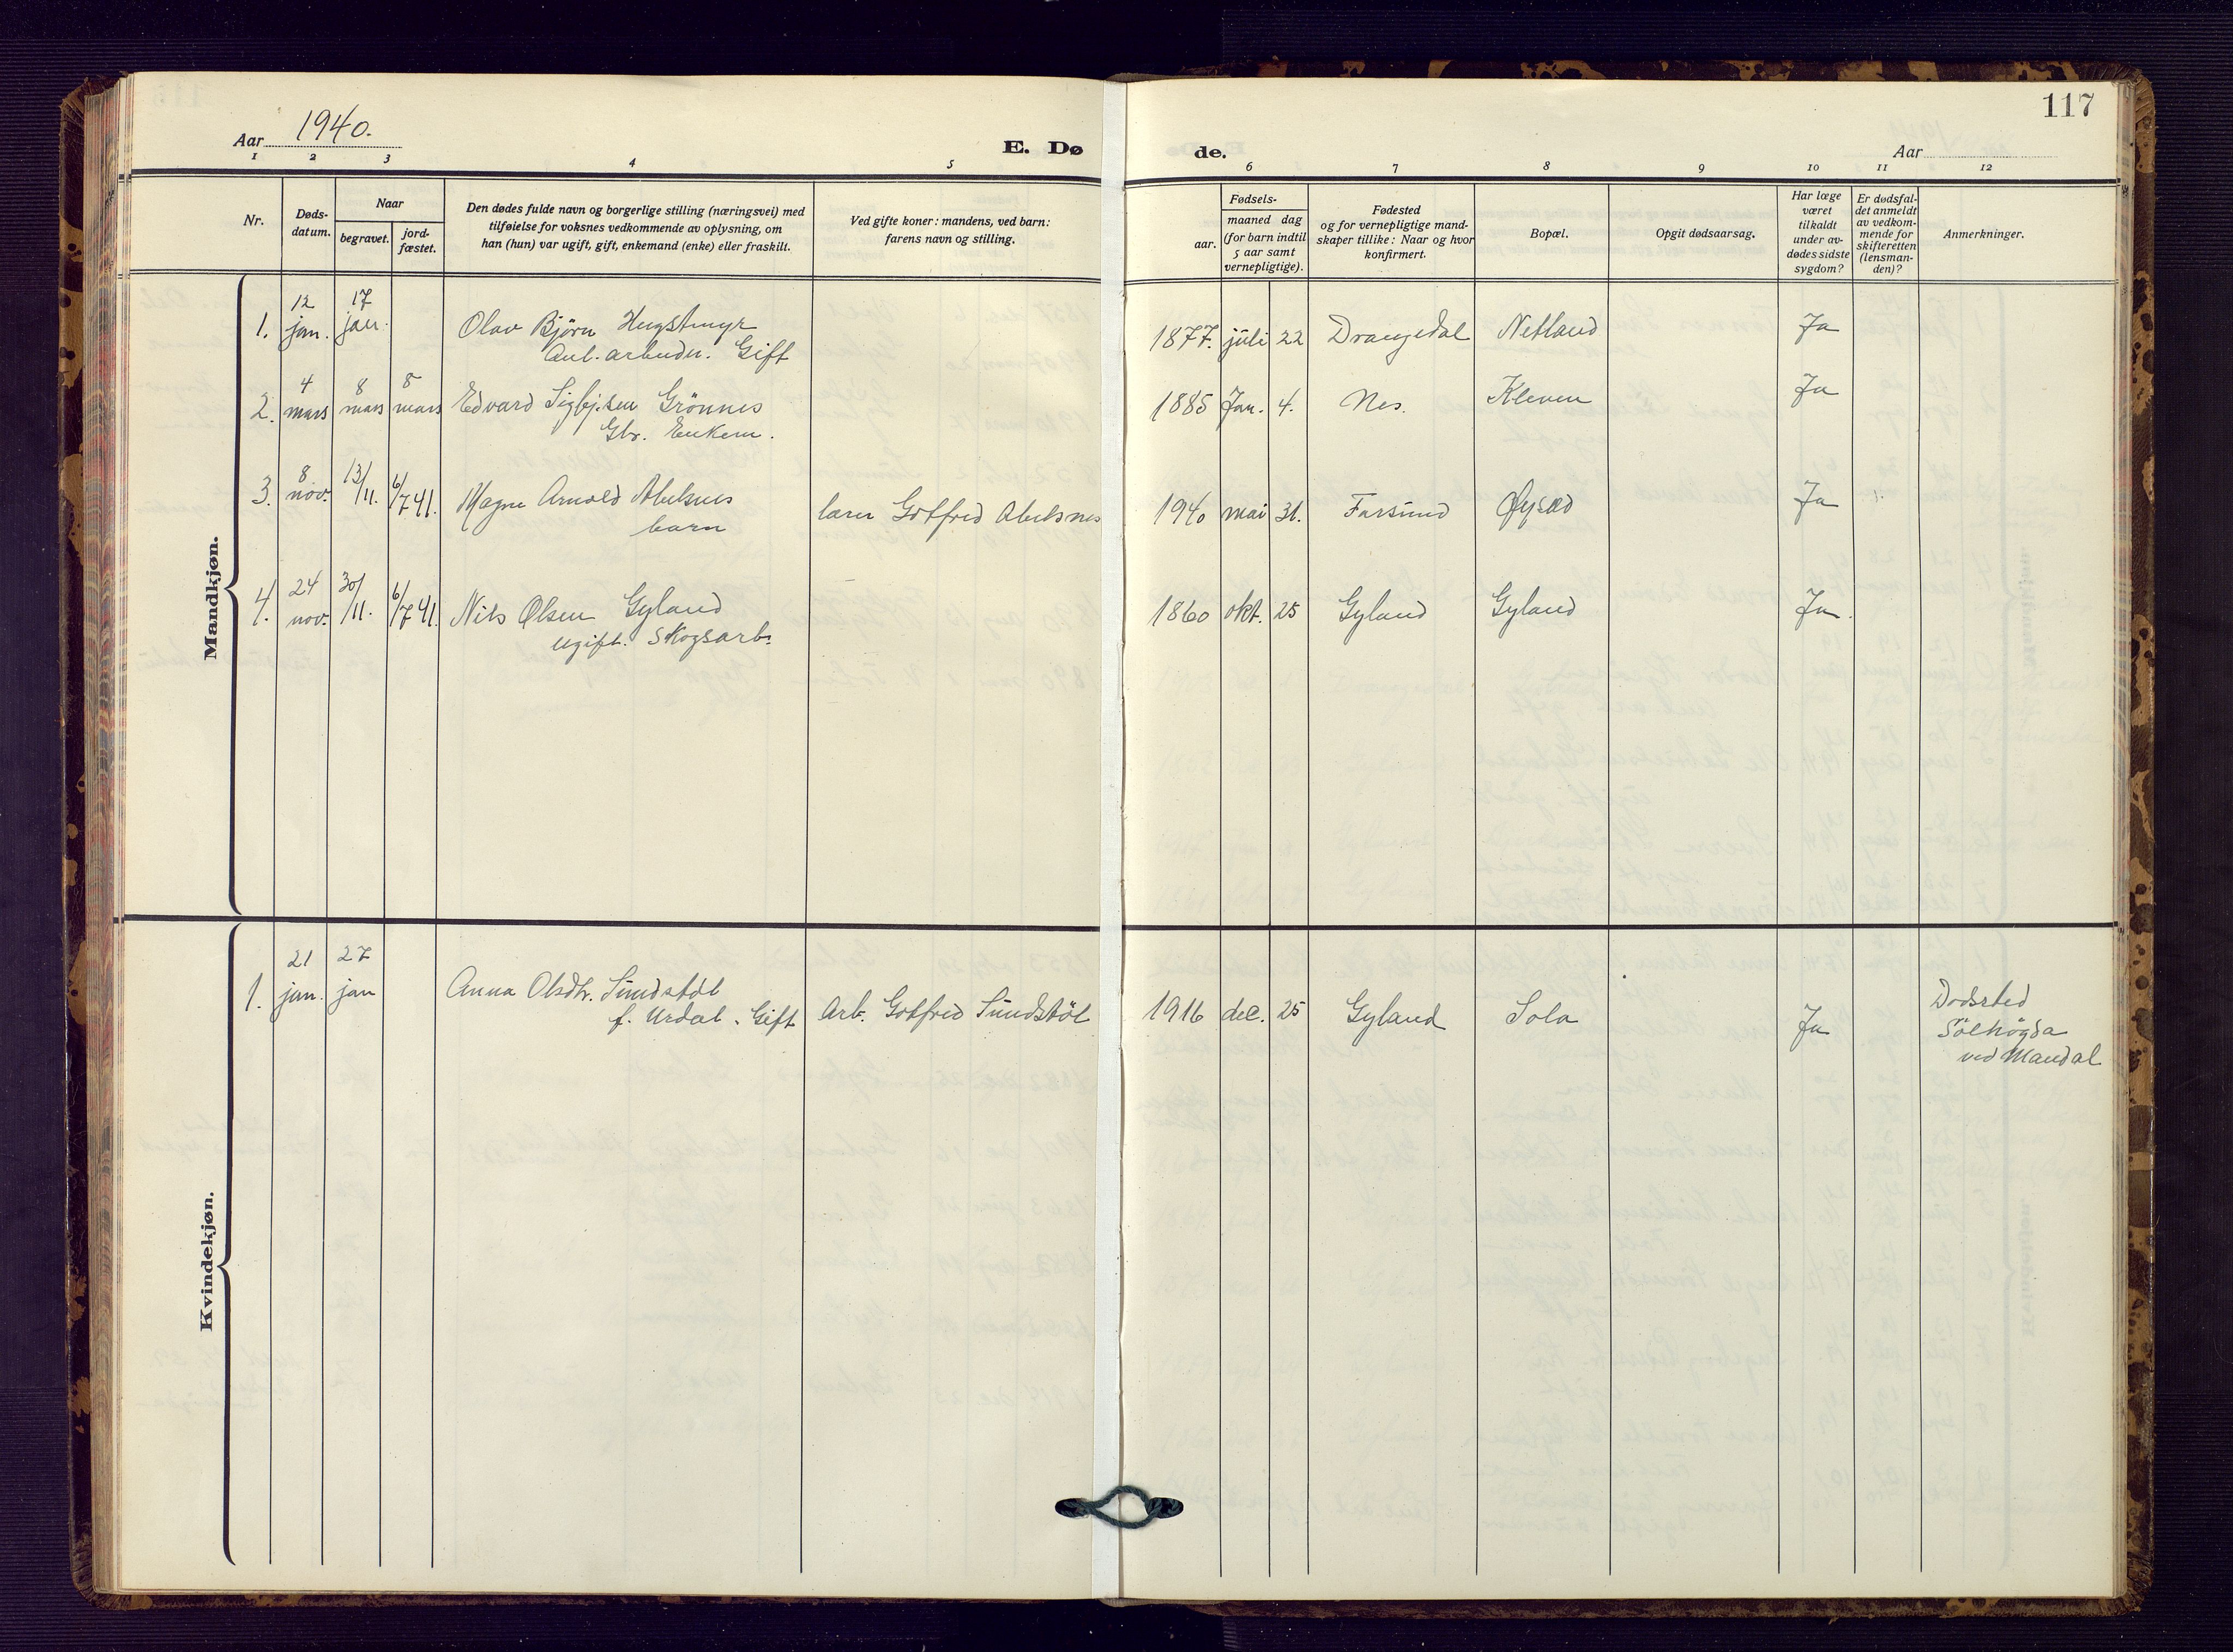 117
Aar 1940.
E. Dø de.
Aar
1 2 3 4 5 6 7 8 9 10 11 12
Nr.
Døds-
datum.
Naar
begravet.
jord-
fæstet.
Den dødes fulde navn og borgerlige stilling (næringsvei) med
tilføielse for voksnes vedkommende av oplysning, om
han (hun) var ugift, gift, enkemand (enke) eller fraskilt.
Ved gifte koner: mandens, ved barn:
farens navn og stilling.
Fødsels-
aar.
maaned dag
(for barn indtil
5 aar samt
vernepligtige).
Fødested
og for vernepligtige mand-
skaper tillike: Naar og hvor
konfirmert.
Bopæl.
Opgit dødsaarsag.
Har læge
været
tilkaldt
under av-
dødes sidste
sygdom?
Er dødsfal-
det anmeldt
av vedkom-
mende for
skifteretten
(lensman-
den)?
Anmerkninger.
Mandkjøn.
12 17
1. jan. jan. Olav Bjørn 1877. juli 22 Drangedal Netland Ja
Gift
4 8 8
2. mars mars mars Edvard Grönnes 1885 Jan. 4. Nes. Kleven Ja
Gbr. Enkem.
8 13/11. 6/7 41.
3. nov. Magne Arnold Abelsnes lærer Gotfred Abelsnes 1940 mai 31. Farsund Øysæd Ja
barn
24 30/11. 6/7 41.
4. nov. Nils Olsen Gyland 1860 okt. 25 Gyland Gyland Ja.
ugift. Skogsarb.
Kvindekjøn.
21 27
1. jan. jan Anna Olsdtr. Sundstöl Arb. Gotfred Sundstöl 1916 dec. 25 Gyland Sola Ja Dødsted
f. Urdal. Gift Sölhögda
ved Mandal